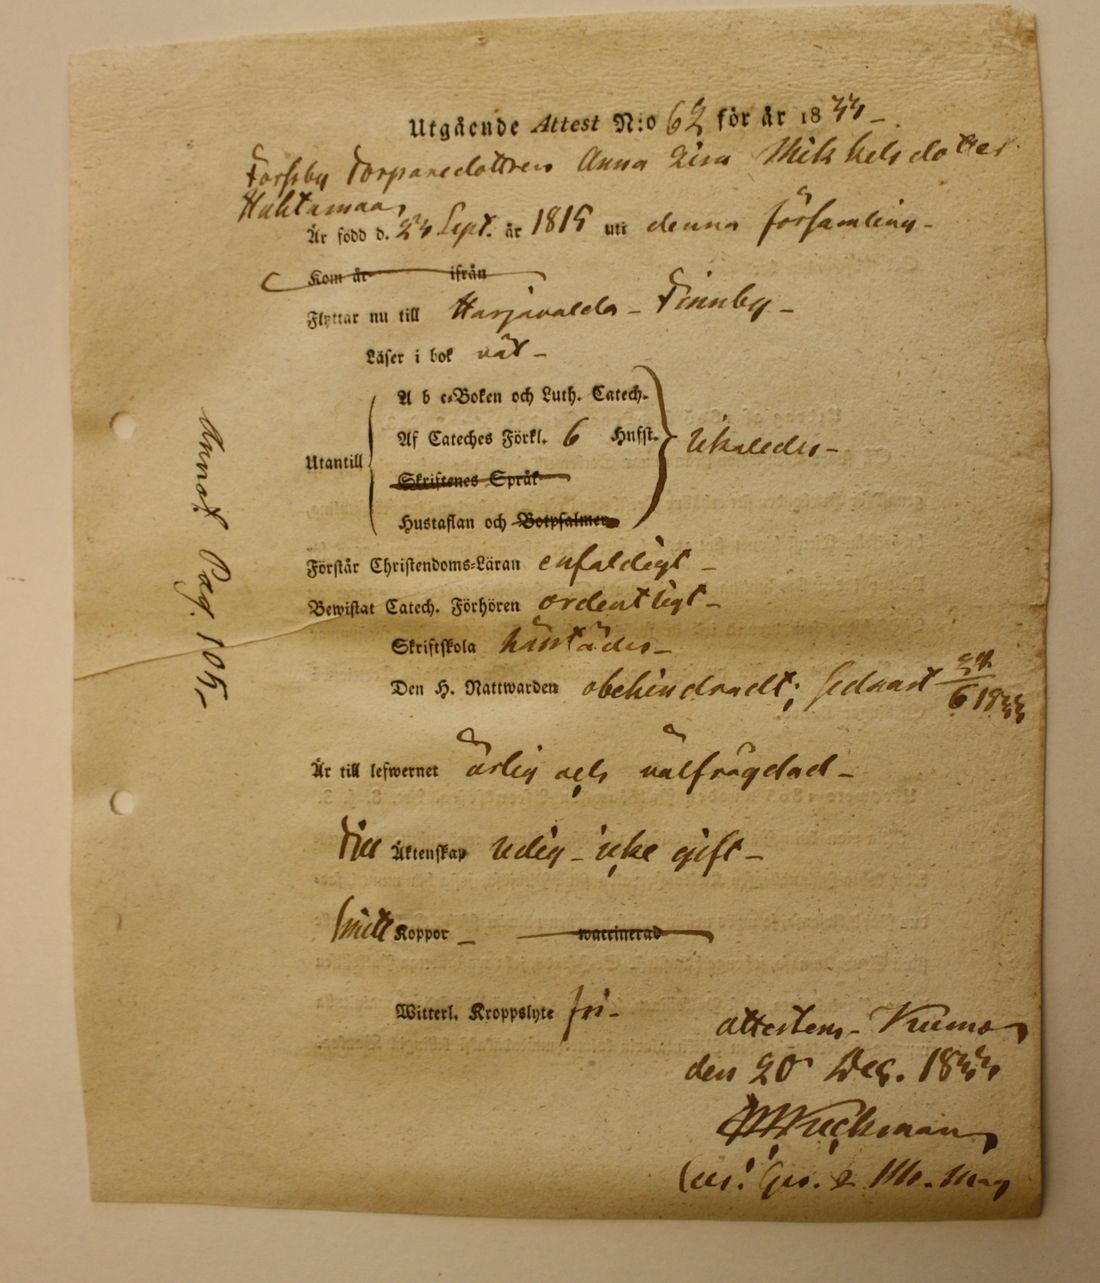 Utgående Attest N:o 62 för år 1833
Forsby Torparedottren Anna Lisa Mikkelsdotter
Huhtamaa
Är född d. 23 Sept. år 1815 uti denna församling
Kom år ifrån
Flyttar nu till Harjavalda Finnby
Läser i bok väl
A b c-Boken och Luth. Catech.
Af Cateches Förkl. 6 Hufst.
Utantill likaledes
Skriftenes Språk
Hustaflan och Botpsalmer
Förstår Christendoms-Läran enfaldigt
Bewistat Catech. Förhören ordentligt
Skriftskola härstädes
Den H. Nattwarden obehindradt; sednast 24/6 1833
Är till lefwernet ärlig och välfrägdad
Till Äktenskap ledig icke gift
haft Koppor waccinerad
Witterl. Kroppslyte fri
attesteras Kumo
den 20 Dec. 1833
Annot. Pag. 105